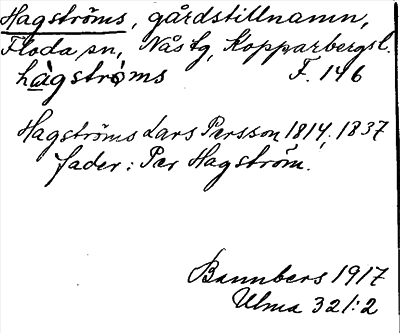 Hagströms, gårdstillnamn,
Floda sn, Nås tg, Kopparbergsl.
hàgströ̀ms F. 146
Hagströms Lars Persson 1814, 1837
fader: Per Hagström.
Bannbers 1917
Ulma 321:2